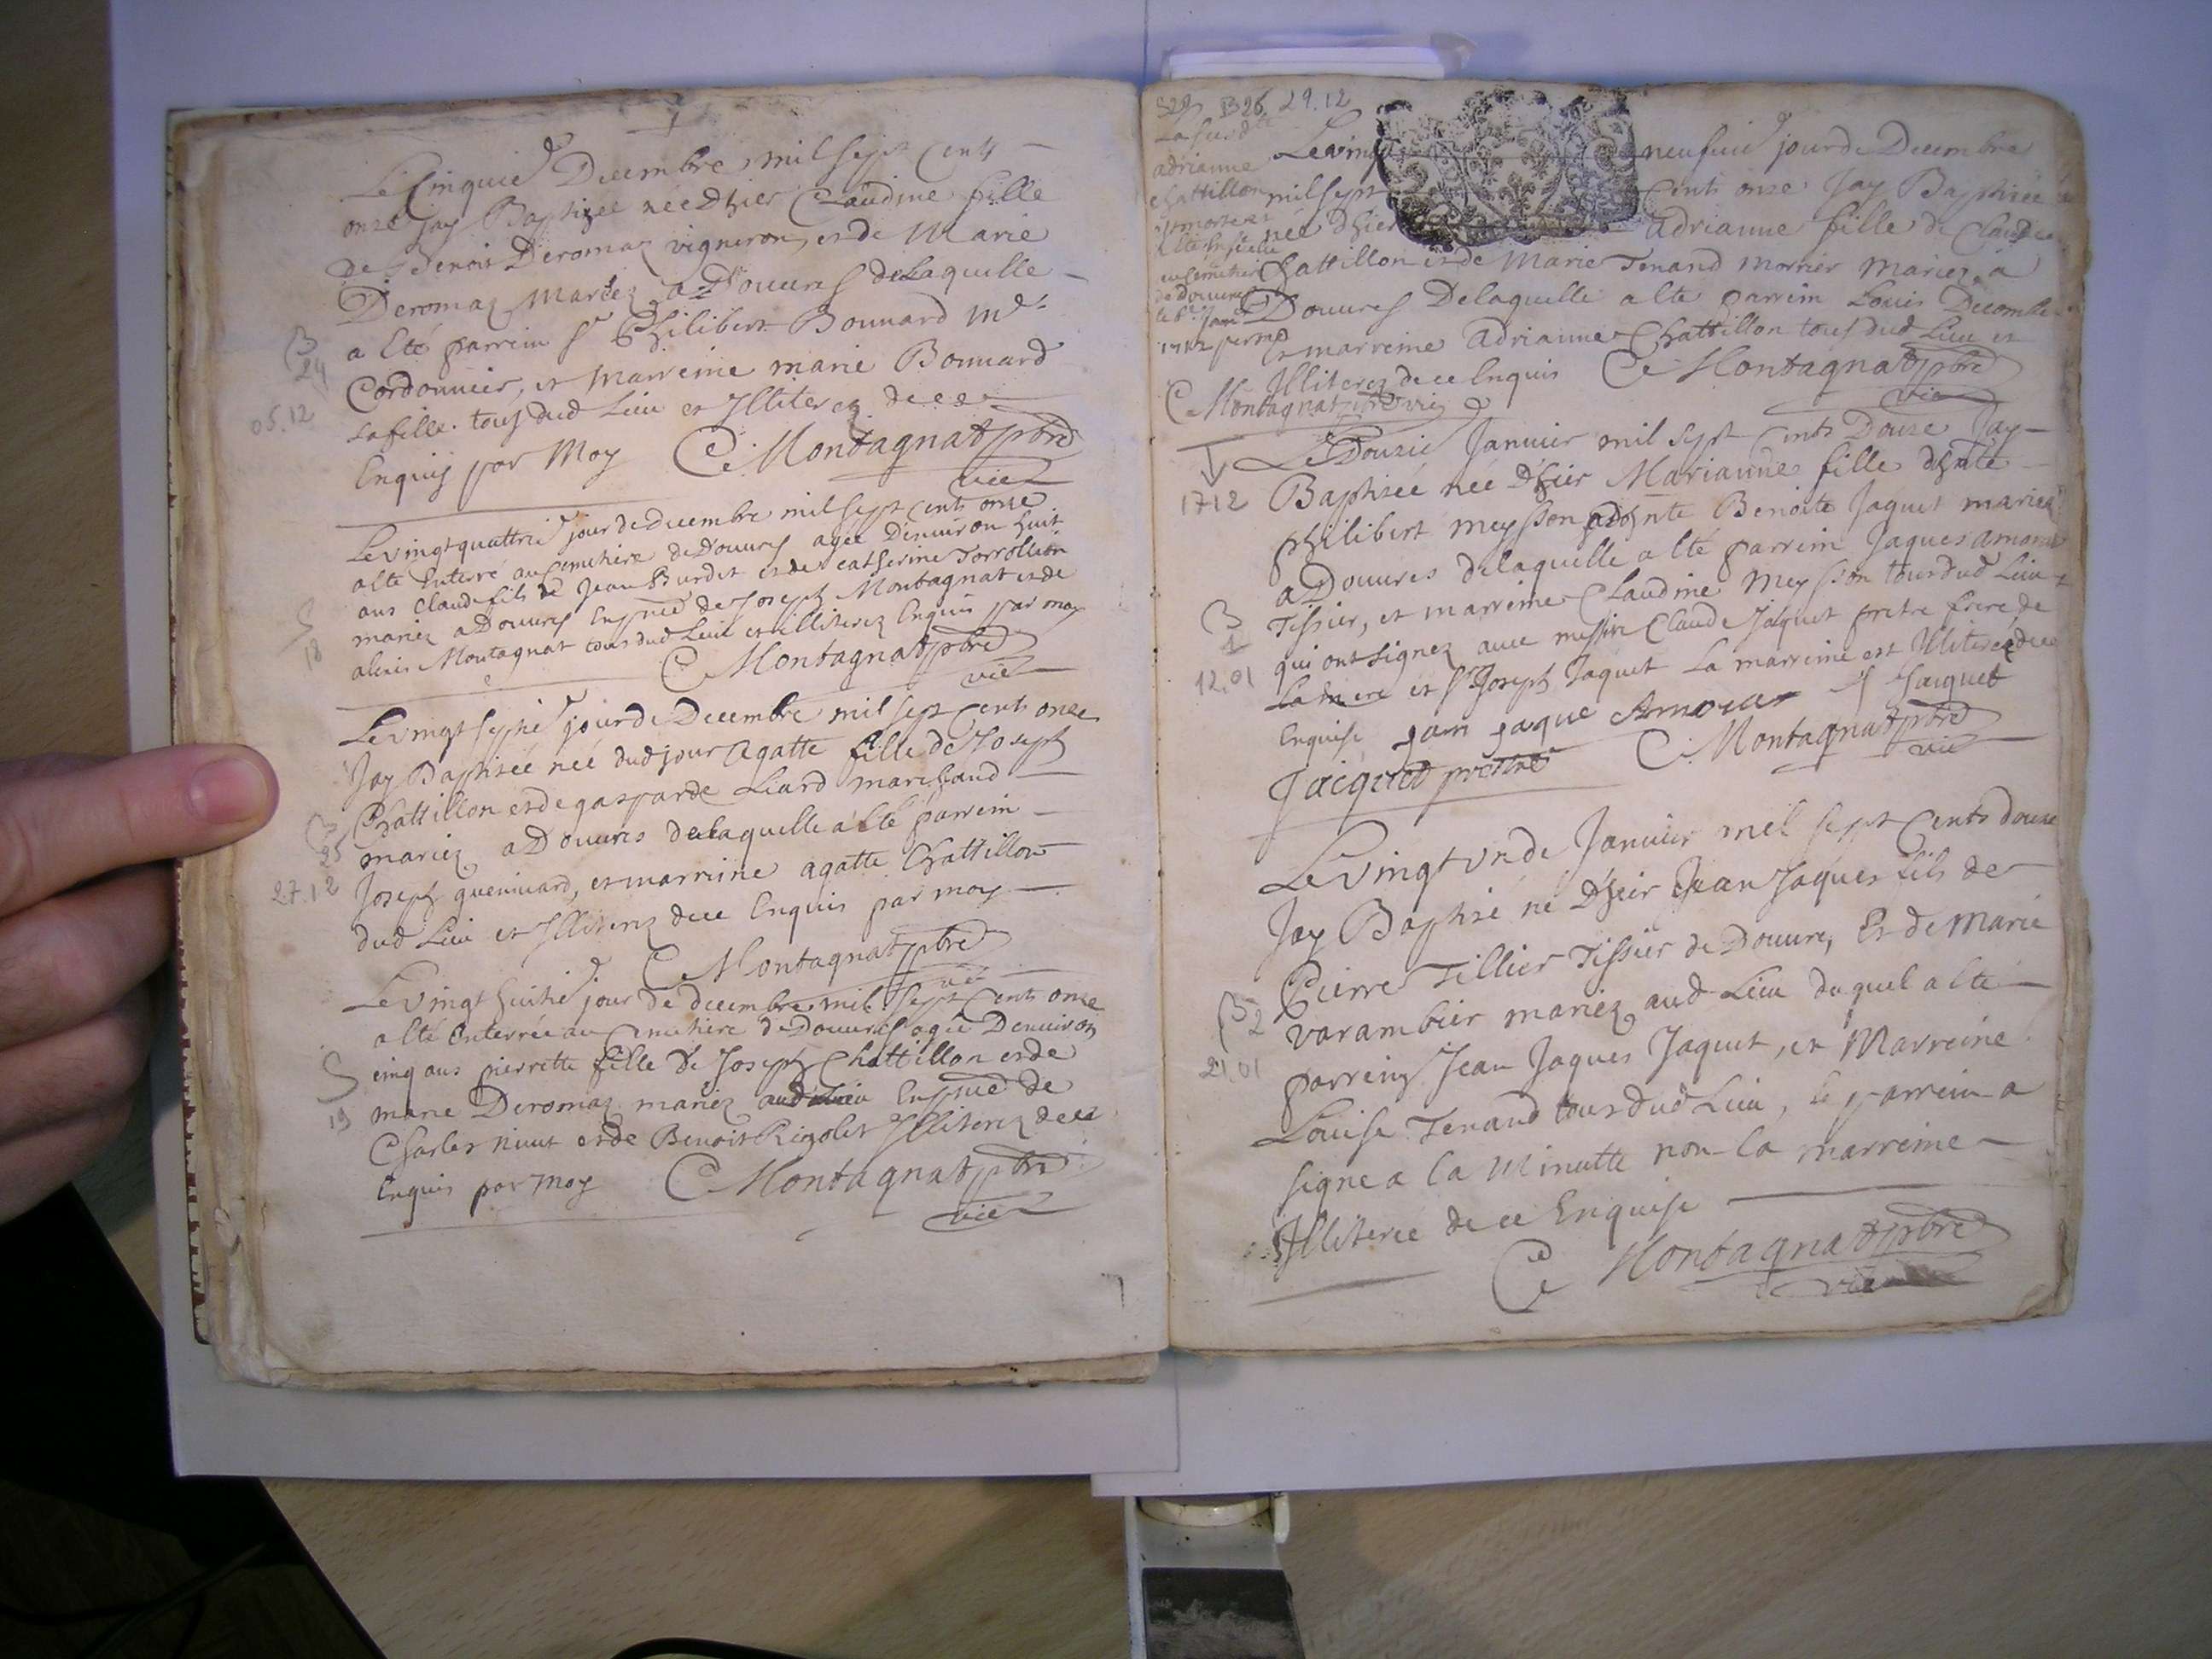 Le Cinquie Decembre mil sept Cents
onze Jay Baptizee née Dhier Claudine fille
de Benoit Deromaz vigneron, et de Marie
Deromaz Mariez a Douures delaquelle
a Eté parrein Sr Philibert Bonnard Me
Cordonnier, et Marreine marie Bonnard
sa fille tous dud Lieu et Illiterez de ce
Enquis par Moy C. Montagnat pbre
vic
B
24
05.12
Le vingt quattrie jour de decembre mil sept cents onze
a Eté Enterré au Cemetiere de Douures agée Denuiron huit
ans Claude fils de Jean Burdet et de catherine Torrollion
mariez a Douures En pnce de Joseph Montagnat et de
alexis Montagnat tous dud Lieu et illiterez Enquis par moy
C Montagnat pbre
vic
S
18
Le vingt septie jour de Decembre mil sept Cents onze
Jay Baptisée née dud jour Agatte fille de Joseph
Chattillon et de gasparde Liard marchand
mariez a Douures delaquelle a Eté parrein
Joseph, et marreine agatte Chattillon
dud Lieu et Illiterez de ce Enquis par moy
C Montagnat pbre
vic
B
25
27.12
Le vingt huitie jour de decembre mil sept Cents onze
a Eté Enterrée au Cemetiere de Douures agée Denuiron
cinq ans pierrette fille de Joseph Chattillon et de
marie Deromaz mariez aud Lieu En pnce de
Charles et de Benoit Rigolet Illiterez de ce
Enquis par moy C Montagnat pbre
vic
S
19
B26 29.12
La susdte
adrianne
Chattillon
est morte et
a Eté Enseuelie
au Cemetiere
de Douures
le 6e Janr
1712 par moy
C Montagnat pbre vic
Le vingt neufuie jour de Decembre
mil sept Cents onze Jay Baptisée
née Dhier adrianne fille de Claude
Chattillon et de Marie Tenand Mariez a
Douures Delaquelle a Eté parrein Louis Decombe
et marreine adrianne Chattillon tous dud Lieu et
Illiterez de ce Enquis C Montagnat pbre
vic
1712
Le Douzie Januier mil sept Cents Douze Jay
Baptisée née Dhier Marianne fille dhnte
philibert meysson et dhnte Benoite Jaquet mariez
a Douures delaquelle a Eté parrein Jaques
Tissier, et marreine Claudine Meysson tous dud Lieu
qui ont signez auec messire Claude Jaquet pretre frere de
La mere et Sr Joseph Jaquet La marreine est Illiterée de ce
Enquise jaque J Jaiquet
Jacquet prestre C Montagnat pbre
vic
B
1
12.01
Le vingt vn de Januier mil sept Cents douze
Jay Baptisé né Dhier Jean Jaques fils de
Pierre Tillier Tissier de Douures Et de Marie
varambier mariez aud Lieu duquel a Eté
parrein Jean Jaques Jaquet, et Marreine
Louise Tenand tous dud Lieu, le parrein a
signe a la Minutte non la marreine
Illiterée de ce Enquise
C Montagnat pbre
vic
B
2
21.01